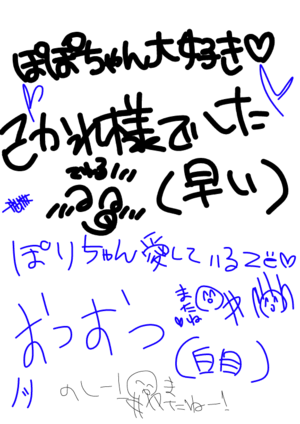 ぽぽちゃん大好き♡
さかれ様でした
でれる
(早い)
ぽりちゃん愛しているぞ♡
まだね♡
おつおつ
(白目)
のしー!
まだねー!